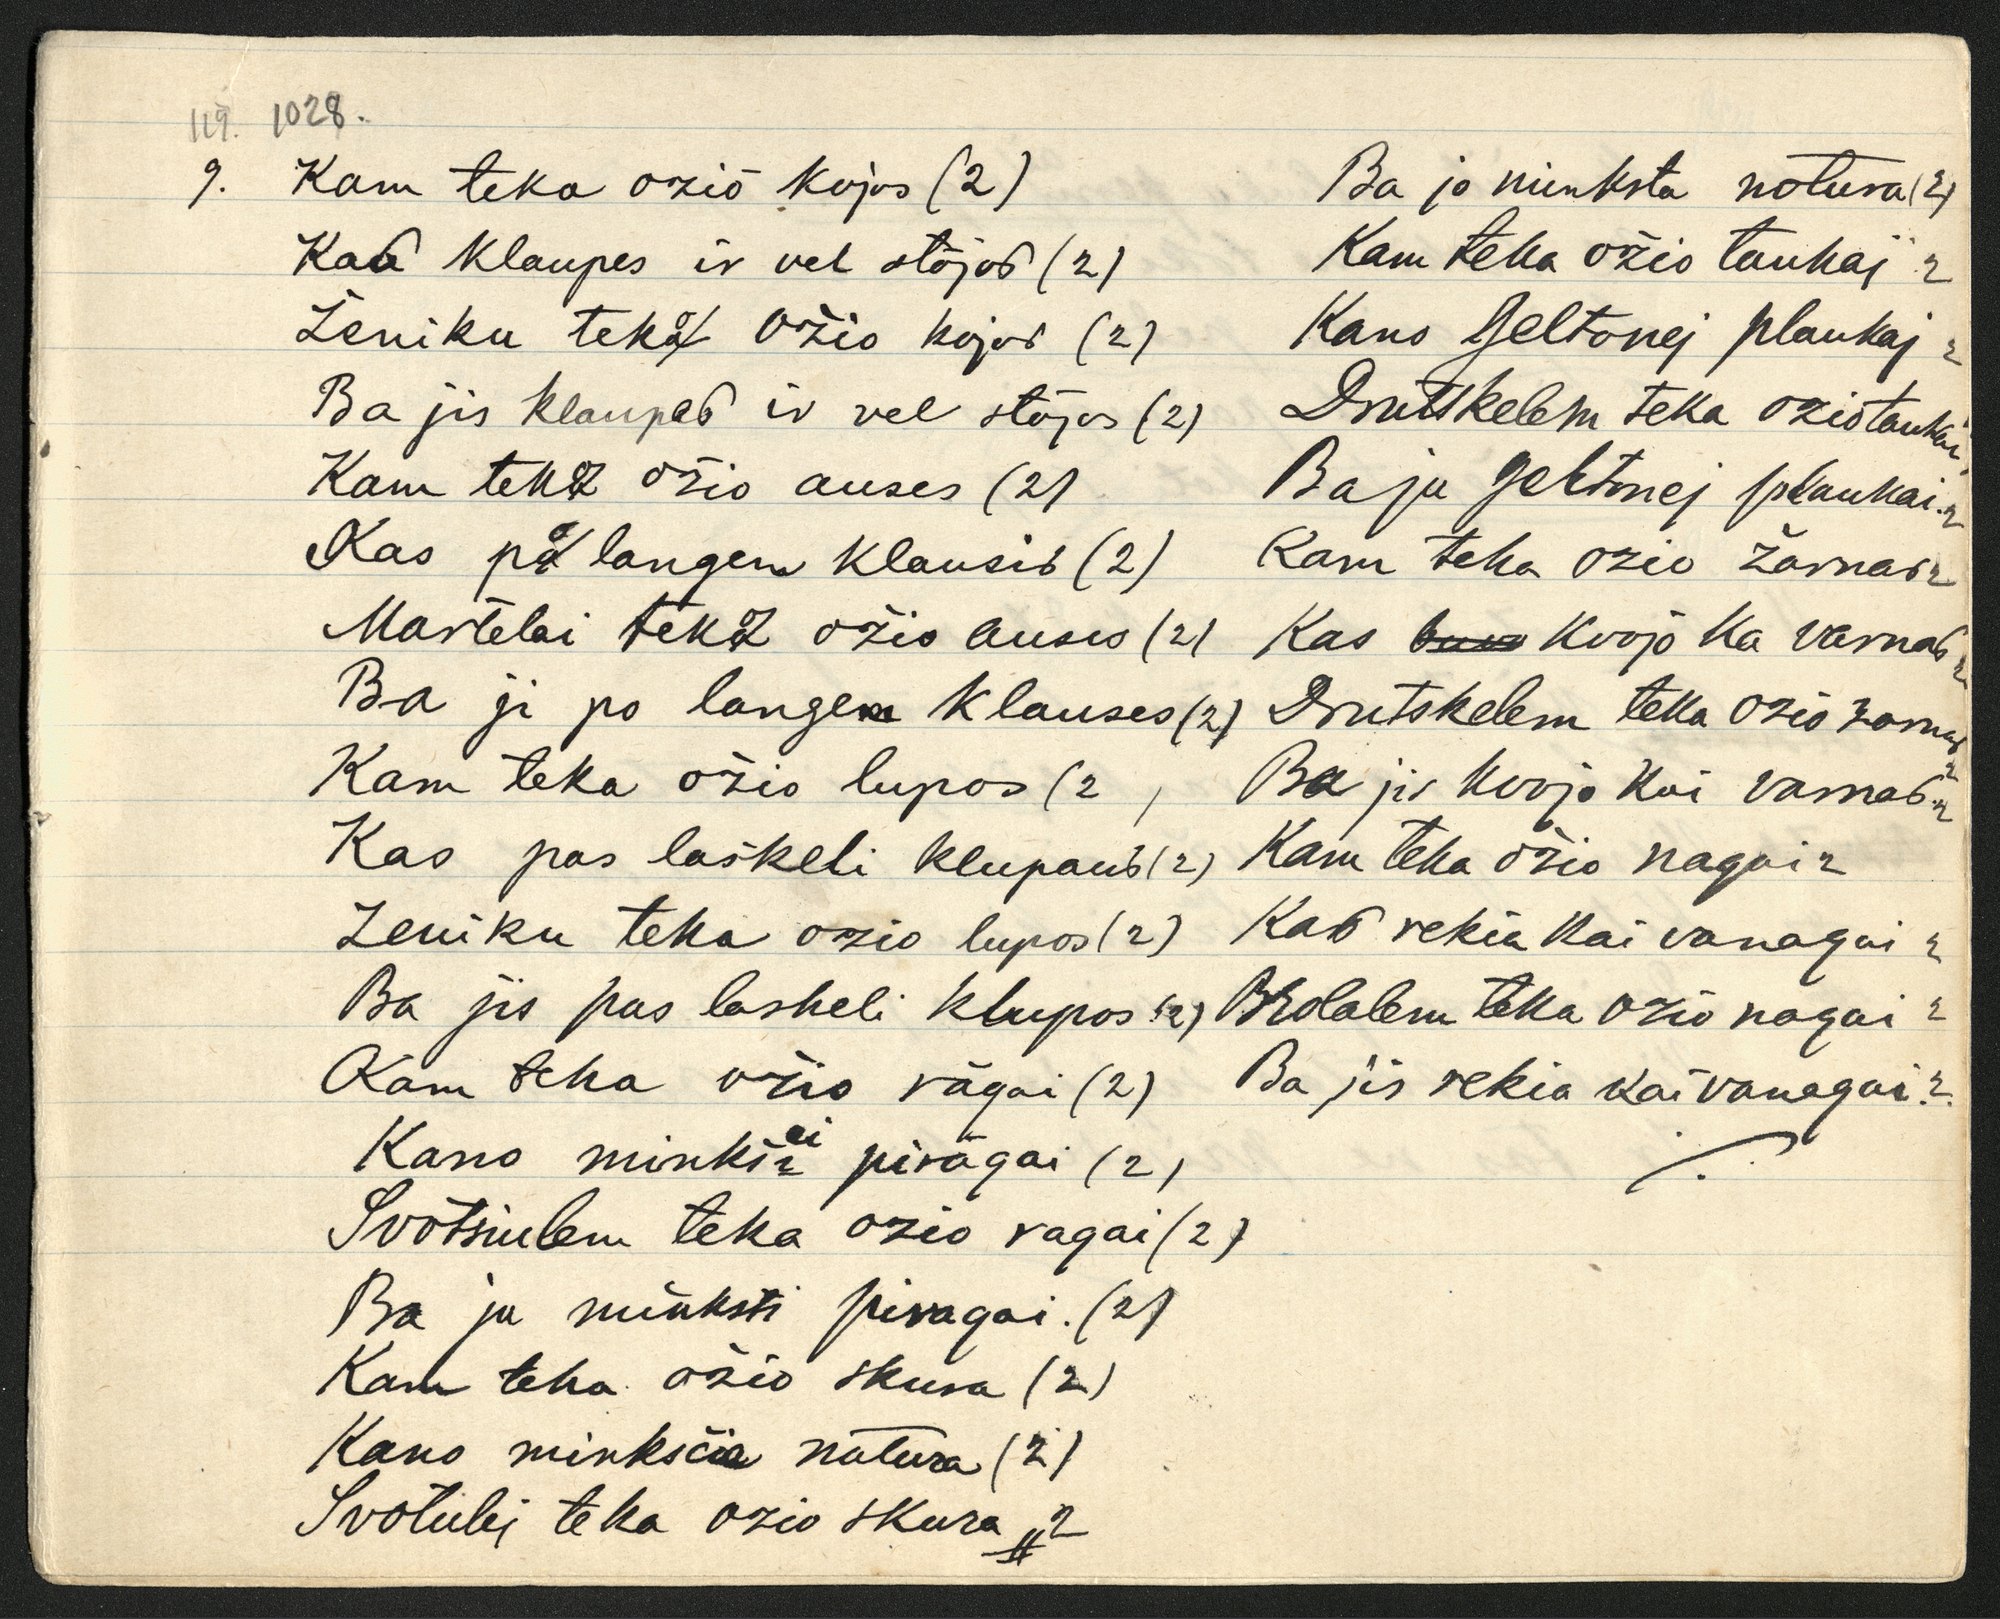 119. 1028.
9. Kam teka oziō kojos (2)
Kas klaupes ir vel stōjos (2)
Ženiku teko ožio kojos (2)
Ba jis klaupes ir vel stōjos (2)
Kam teko ožio auses (2)
Kas po langem klausis (2)
Martelai teko ožio auses (2)
Ba ji po langem klauses (2)
Kam teka ožio lupos (2
Kas pas laškeli klupaus (2)
Ženiku teka ozio lupos (2)
Ba jis pas lasheli klupos (2)
Kam teka ožio rāgai (2)
Kano minkšei pirāgai (2)
Svotsiulem teka ozio ragai (2)
Ba ju minksti piragai. (2)
Kam teka ožio skura (2)
Kano minkščia natura (2)
Svotulej teka ozio skura 2
Ba jo minksta notura (2)
Kam teka ožio taukaj 2
Kano geltonej plaukaj 2
Drutskelem teka oziotaukai
Ba ju geltonej plaukai. 2
Kam teka ozio žarnas 2
Kas kvojo ka varnas 2
Drutskelem teka ozio zarnas 2
Ba jis kvojo kai varnas. 2
Kam teka ožio nagai 2
Kas rekia kai vanagai 2
teka ozio nagai 2
Ba jis rekia kai vanagai. 2.